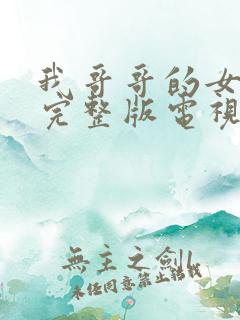 我哥哥的女
完整版電視
無主之劍
未经同意禁止转载